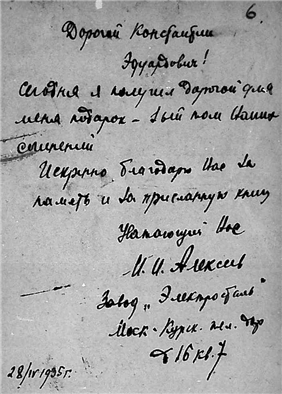 6.
Дорогой Константин
Эдуардович!
Сегодня я получил дорогой для
меня подарок – 1ый том Ваших
сочинений
Искренно благодарю Вас за
память и за присланную книгу
Уважающий Вас
И. И. Алексеев
Завод „Электросталь"
Моск-Курск. жел. дор
д 16 кв. 7
28/IV 1935 г.